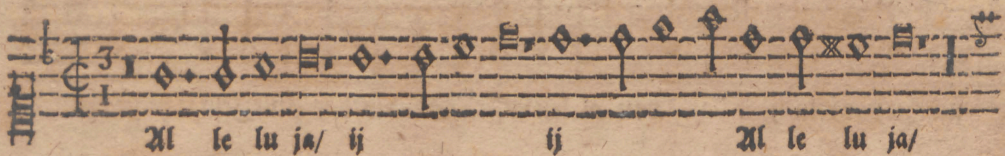 3
1
Al le lu ja/ ij ij Al le lu ja/